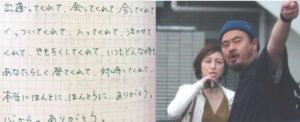 出逢ってくれて、会ってくれて、合ってくれて
くっついてくれて、入ってくれて、泣かせて
くれて、きもちくしてくれて、いつもどんな時も
あなたらしく居てくれて、対峙してくれて、
本当にほんとに、ほんとうに…ありがとう。
心から。ありがとう。